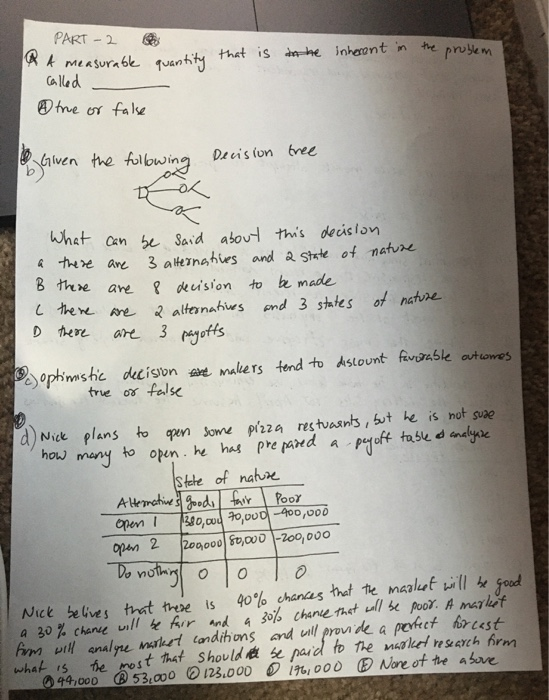 PART - 2
A measurable quantity that is inherent in the problem
called ________
A true or false
b) Given the following Decision tree
What can be said about this decision
a there are 3 alternatives and 2 state of nature
B there are 8 decision to be made
C there are 2 alternatives and 3 states of nature
D there are 3 payoffs
c) optimistic decision makers tend to discount favorable outcomes
true or false
d) Nick plans to open some pizza restuarnts, but he is not sure
how many to open. he has prepared a payoff table analyze
State of nature
Alternatives good fair Poor
open 1 380,000 70,000 -400,000
open 2 200,000 80,000 -200,000
Do nothing 0 0 0
Nick belives that there is 40% chances that the market will be good
a 30% chance will be fair and a 30% chance that will be poor. A market
firm will analyze market conditions and will provide a perfect forcast
what is the most that should be paid to the market research firm
A 44,000 B 53,000 C 123,000 D 176,000 E None of the above